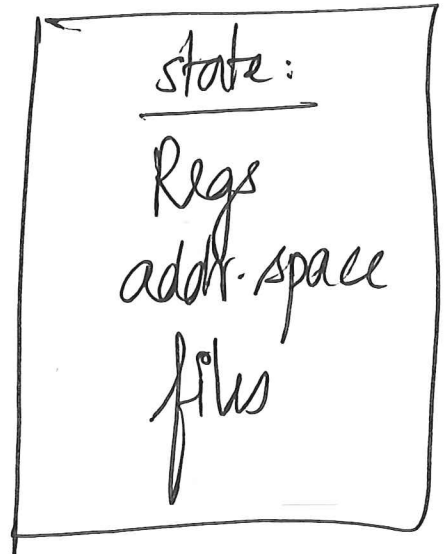 state:
Regs
addr. space
files